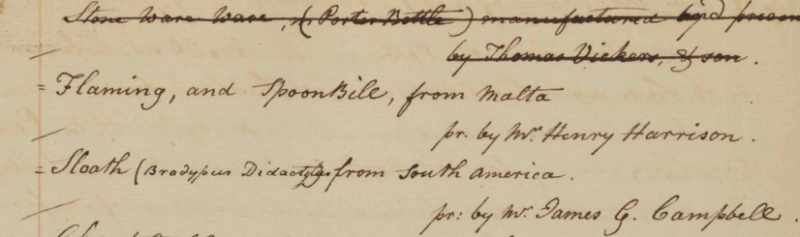 Stone Ware Ware, (Porter Bottle) manufactured & presen
by Thomas Vickers, & son.
= Flaming, and SpoonBill, from Malta
pr. by Mr. Henry Harrison.
= Sloath (Bradypus Didactylus from South America.
pr: by Mr. James G. Campbell.